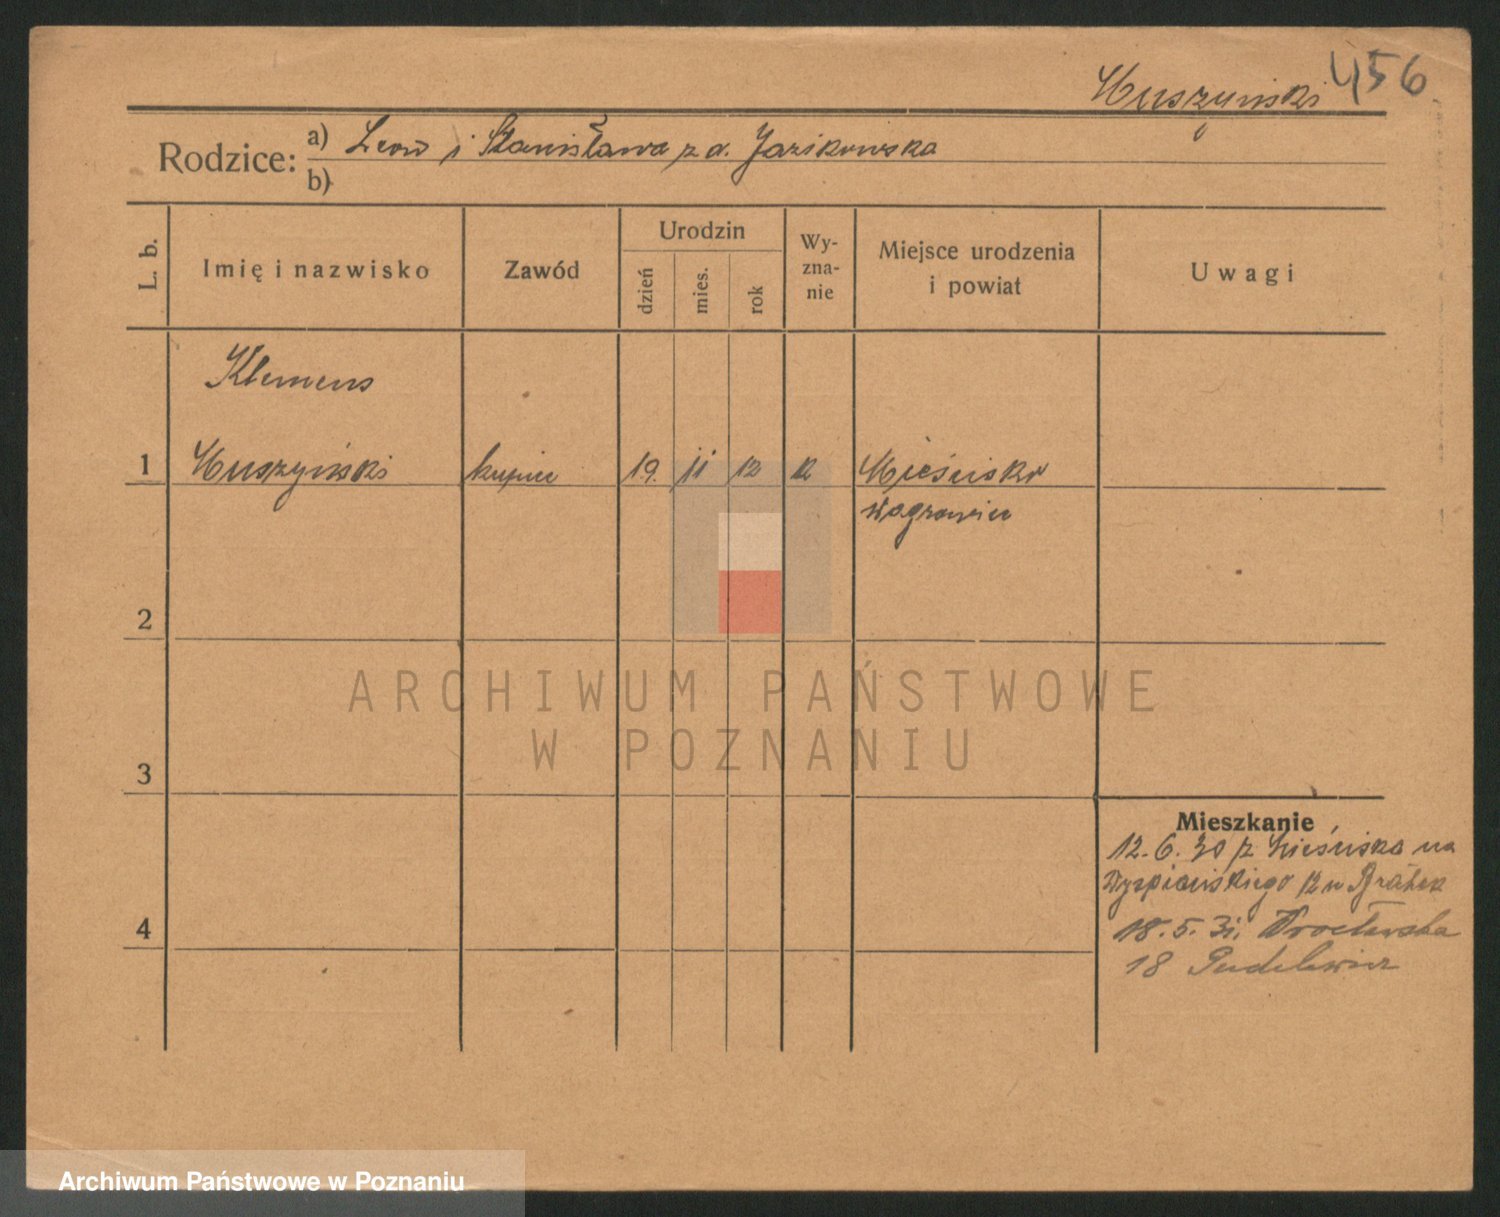 Muszyński 456
Rodzice: a) Leon i Stanisława z d. Jazikowska
b)
L. b.
Imię i nazwisko
Zawód
Urodzin
dzień
mies.
rok
Wy-
zna-
nie
Miejsce urodzenia
i powiat
Uwagi
Klemens
1 Muszyński kupiec 19. 11 12 k Mieścisko
Wągrowiec
2
ARCHIWUM PAŃSTWOWE
W POZNANIU
3
Mieszkanie
12. 6. 30 z Mieściska na
Wyspiańskiego 12 u
4
18. 5. 31. Wrocławska
18
Archiwum Państwowe w Poznaniu